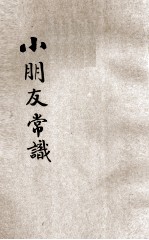 小朋友常識